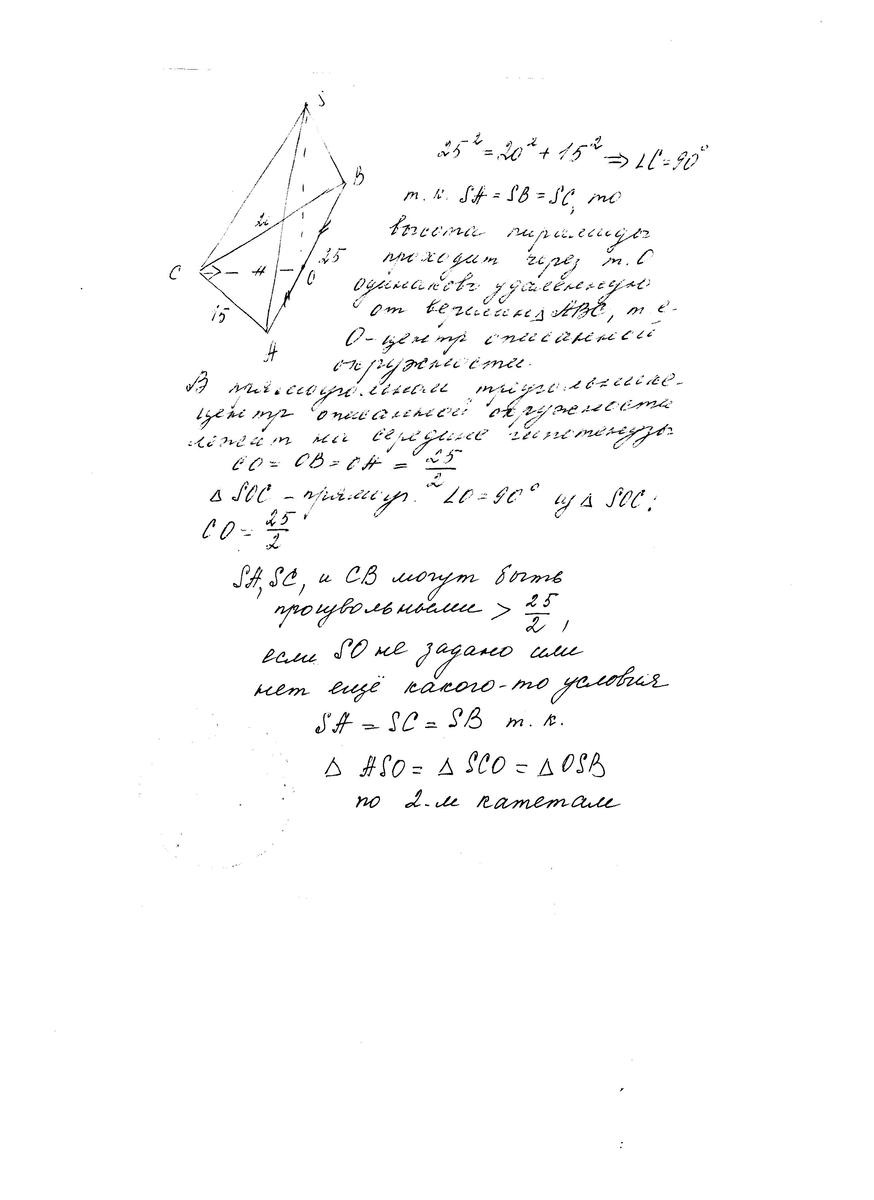 S
B
20
25
C
O
15
A
25² = 20² + 15² ⇒ ∠C = 90°
т. к. SA = SB = SC, то
высота пирамиды
проходит через т. О
одинаково удаленную
от вершин △ ABC, т. е.
О - центр описанной
окружности.
В прямоугольном треугольнике
центр описанной окружности
лежит на середине гипотенузы
CO = OB = OA = 25/2
△ SOC - прямоуг. ∠O = 90° из △ SOC:
CO = 25/2
SA, SC, и CB могут быть
произвольными > 25/2,
если SO не задано или
нет ещё какого-то условия
SA = SC = SB т. к.
△ ASO = △ SCO = △ OSB
по 2-м катетам